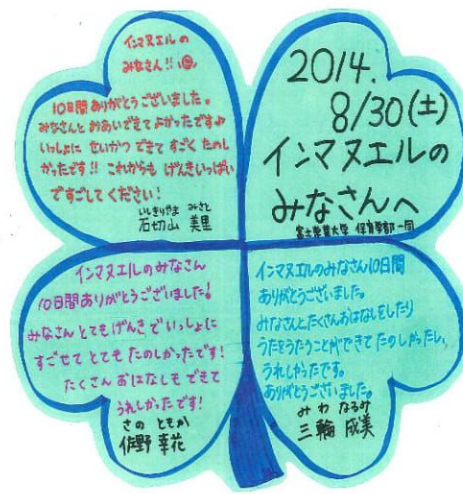 インマヌエルの
みなさん!!
10日間ありがとうございました。
みなさんとおあいできてよかったです♪
いっしょに せいかつ できて すごく たのし
かったです!! これからも げんきいっぱい
ですごしてください!
いしきりやま みさと
石切山 美里
2014.
8/30(土)
インマヌエルの
みなさんへ
富士常葉大学 保育学部一同
インマヌエルのみなさん
10日間ありがとうございました!
みなさんとてもげんきでいっしょに
すごせてとても たのしかったです!
たくさん おはなしも できて
うれしかったです!
さの ともか
佐野 幸花
インマヌエルのみなさん10日間
ありがとうございました。
みなさんとたくさんおはなしをしたり
うたをうたうことができて たのしかったし、
うれしかったです。
ありがとうございました。
みわ なるみ
三輪 成美